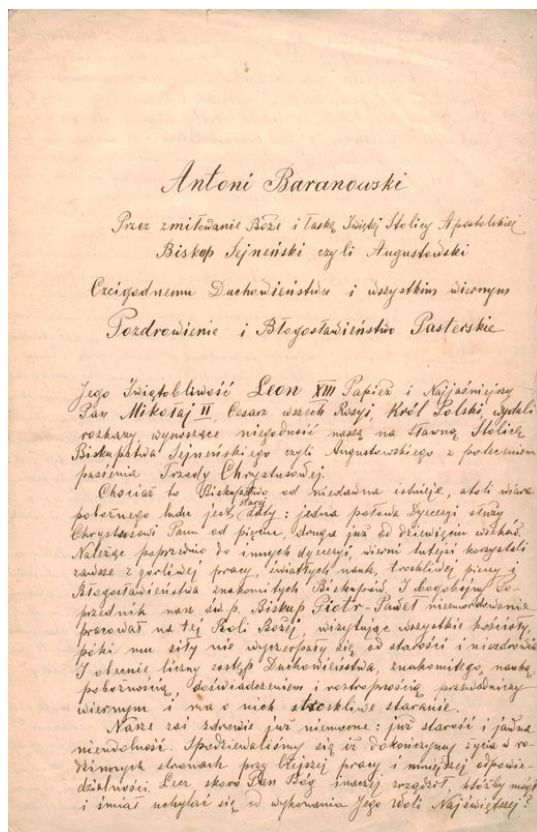 Antoni Baranowski
Przez zmiłowanie Boże i łaskę Świętej Stolicy Apostolskiej
Biskup Sejneński czyli Augustowski
Czcigodnemu Duchowieństwu i wszystkim wiernym
Pozdrowienie i Błogosławieństwo Pasterskie
Jego Świętobliwość Leon XIII Papież i Najjaśniejszy
Pan Mikołaj II, Cesarz wszech Rosyi, Król Polski, wydali
rozkazy, wynoszące niegodność naszą na sławną Stolicę
Biskupstwa Sejneńskiego czyli Augustowskiego z poleceniem
pasienia Trzody Chrystusowej.
Chociaż to Biskupstwo od niedawna istnieje, atoli wiara
pobożnego ludu jest starej daty: jedna połowa Dyecezyi służy
Chrystusowi Panu od pięciu, druga już od dziewięciu wieków.
Należąc poprzednio do innych dyecezyi, wierni tutejsi korzystali
zawsze z gorliwej pracy, światłych nauk, troskliwej pieczy i
Błogosławieństwa znakomitych Biskupów. I bogobojny Po-
przednik nasz św.p. Biskup Piotr-Paweł niezmordowanie
pracował na tej Roli Bożej, wizytując wszystkie kościoły,
póki mu siły nie wyczerpały się od starości i niezdrowia.
I obecnie liczny zastęp Duchowieństwa, znakomitego, nauką,
pobożnością, doświadczeniem i roztropnością przewodniczy
wiernym i ma o nich troskliwe staranie.
Nasze zaś zdrowie już niemocne: już starość i jawna
nieudolność. Spodziewaliśmy się iż dokończymy życia w ro-
dzinnych stronach przy lżejszej pracy i mniejszej odpowie-
dzialności. Lecz skoro Pan Bóg inaczej zrządził, któżby mógł
i śmiał uchylać się od wykonania Jego Woli Najświętszej?